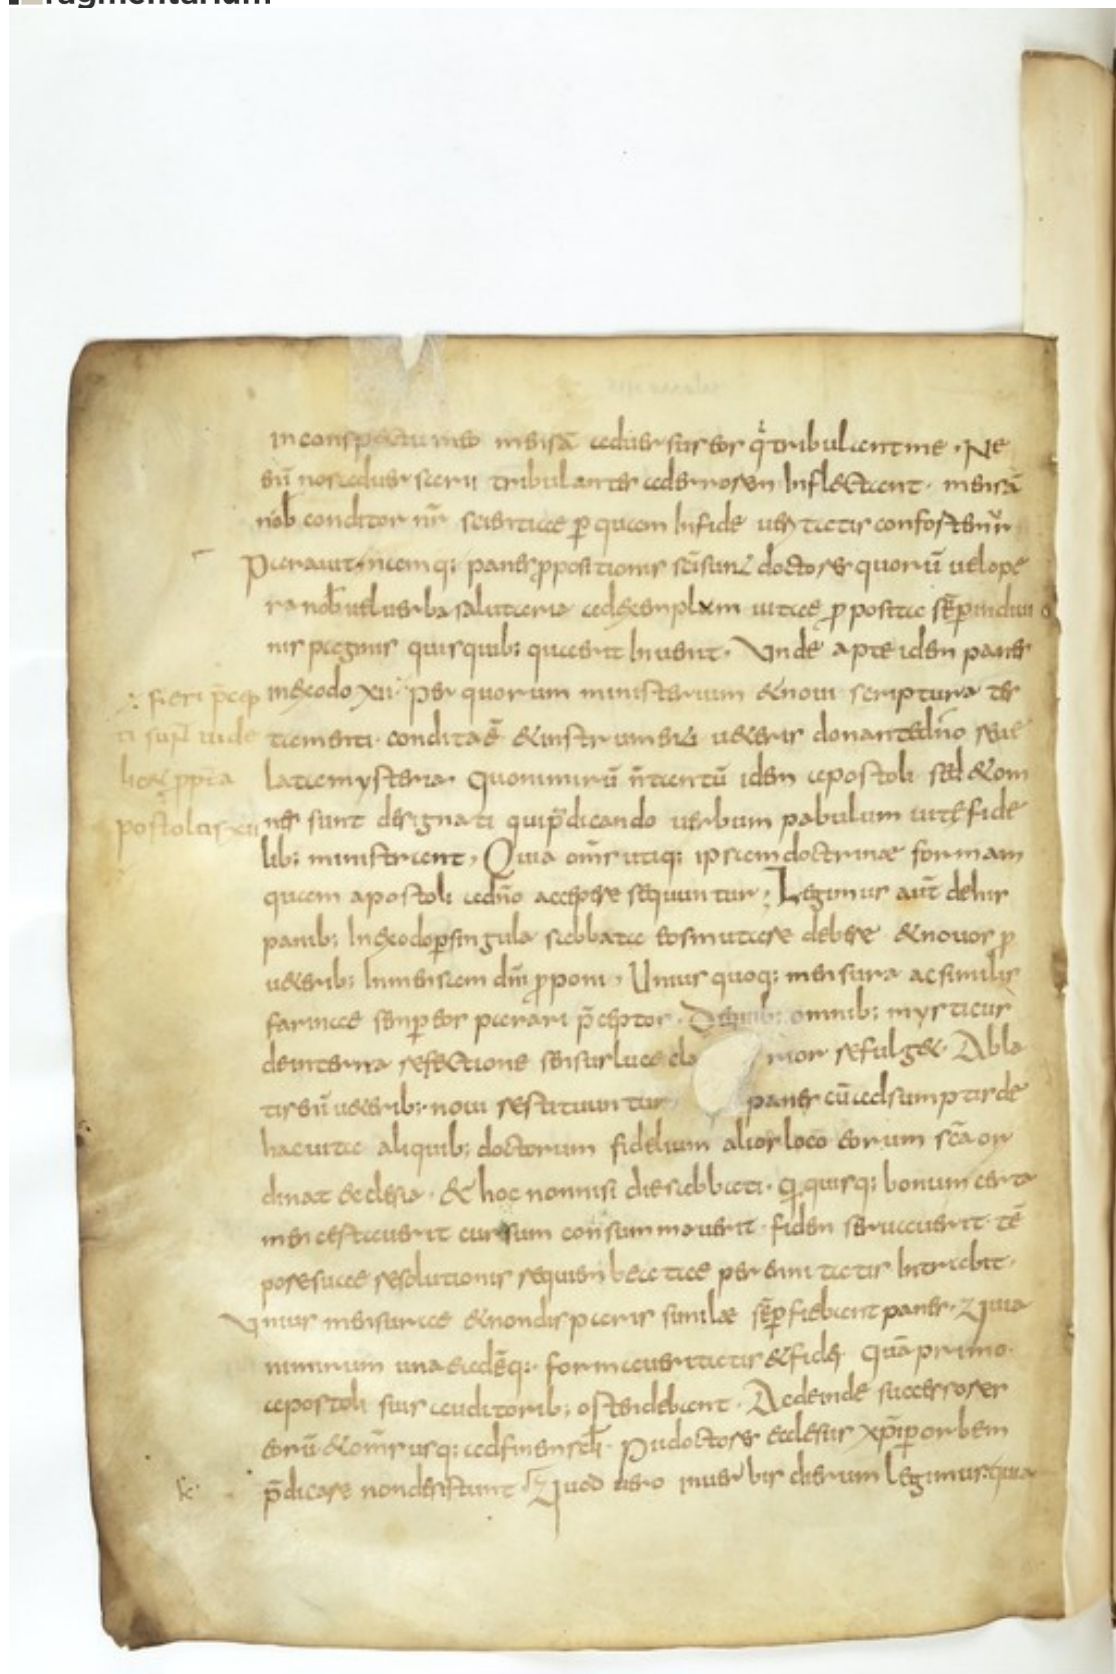 ragmentarium
in conspectu meo mensā aduersus eos q̇ tribulant me · Ne
eū nos aduersarii tribulantes ad errorem inflectant · mensā
nob conditor nr̄ scientiae p̱ quam in fide ueritatis confortemur
Parauit namq; panes ꝓpositionis sc̄i sunt doctores quorū uel ope
ra nob uel uerba salutaria ad exemplum uitae ꝓposita sēp indiui
nis paginis quisquib; quaerit inuenit · Vnde apte idem panes
∴ fieri p̄cep
in exodo xii · Per quorum ministerium & noui scriptura tes
ti sun̄t uide
tamenti condita ē & instrumenti ueteris donante dn̄o reue
licet ꝓpt̄ a
lata mysteria · Quo nimirū n̄ tantū idem apostoli sed & om
postolis xii
nes sunt designati qui p̄dicando uerbum pabulum uitę fide
lib; ministrant , Quia om̄s utiq; ipsam doctrinae formam
quam apostoli a dn̄o accepere sequuntur ; Legimus aut̄ de his
panib; in exodo p̱ singula sabbata eos mutare debere & nouos ꝓ
ueterib; in mensam dn̄i ꝓponi , Unius quoq; mensura ac similis
farinae semper eos parari p̄ceptor · De quib; omnib; mysticus
de interna refectione sensus luce cla mor refulget · Abla
tis eū ueterib; noui restituuntur panes cū adsumptis de
hac uita aliquib; doctorum fidelium alios loco eorum sc̄a or
dinat ecclesia · & hoc nonnisi die sabbati · q quisq; bonum certa
men certauerit cursum consummauerit · fidem seruauerit tē
pore suae resolutionis requiem beatae perennitatis intrabit ·
Vnius mensurae & non dispares similae sēp fiebant panes · Quia
nimirum una eadēq; forma ueritatis & fidei quā primo
apostoli suis auditorib; ostendebant · Ac deinde successores
eorū & om̄s usq; ad finem scl̄i · Pii doctores ecclesiis xp̄i p̱ orbem
p̄dicare non desistunt · Quod uero in uerbis dierum legimus quia